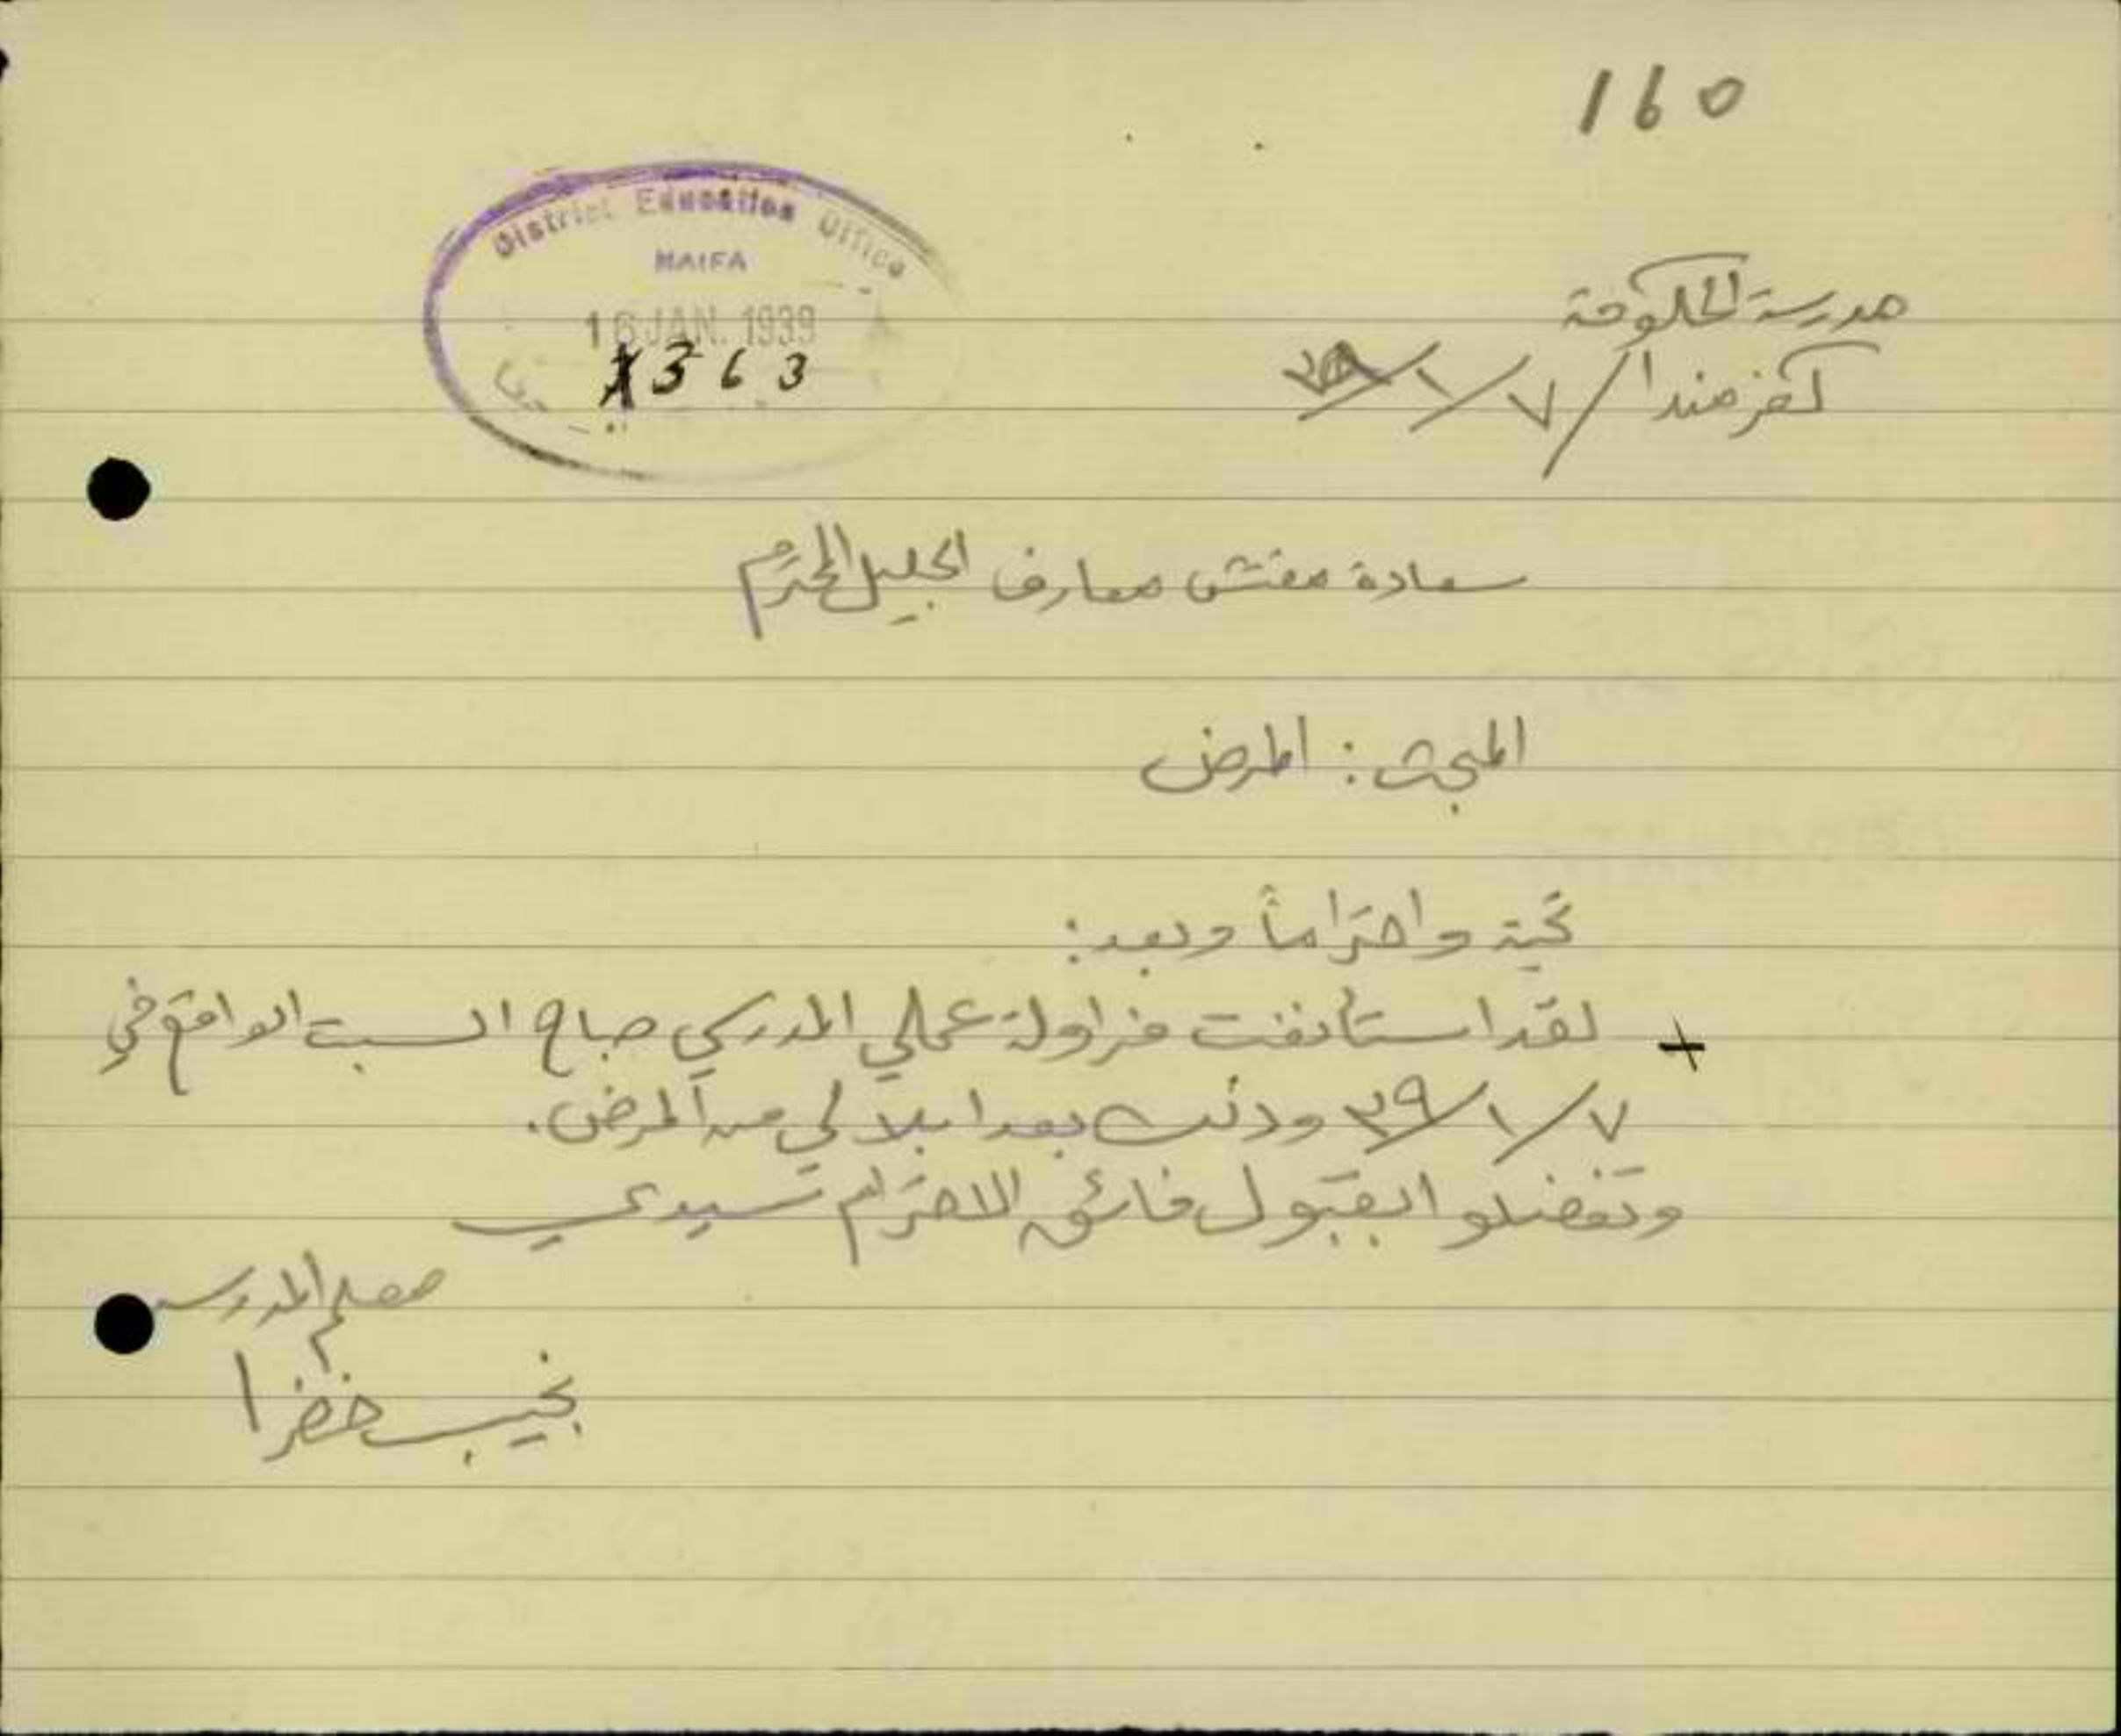 160
District Education Office
HAIFA
16 JAN. 1939
1363
مدرسة الحكومة
كفر مندا / ٧/١/٣٩
سعادة مفتش معارف الجليل المحترم
المبحث : المرض
تحية واحتراماً وبعد:
+ لقد استأنفت مزاولة عملي المدرسي صباح السبت الواقع في
٣٩/١/٧ وذلك بعد ابلالي من المرض.
وتفضلوا بقبول فائق الاحترام سيدي
معلم المدرسة
نجيب خضرا